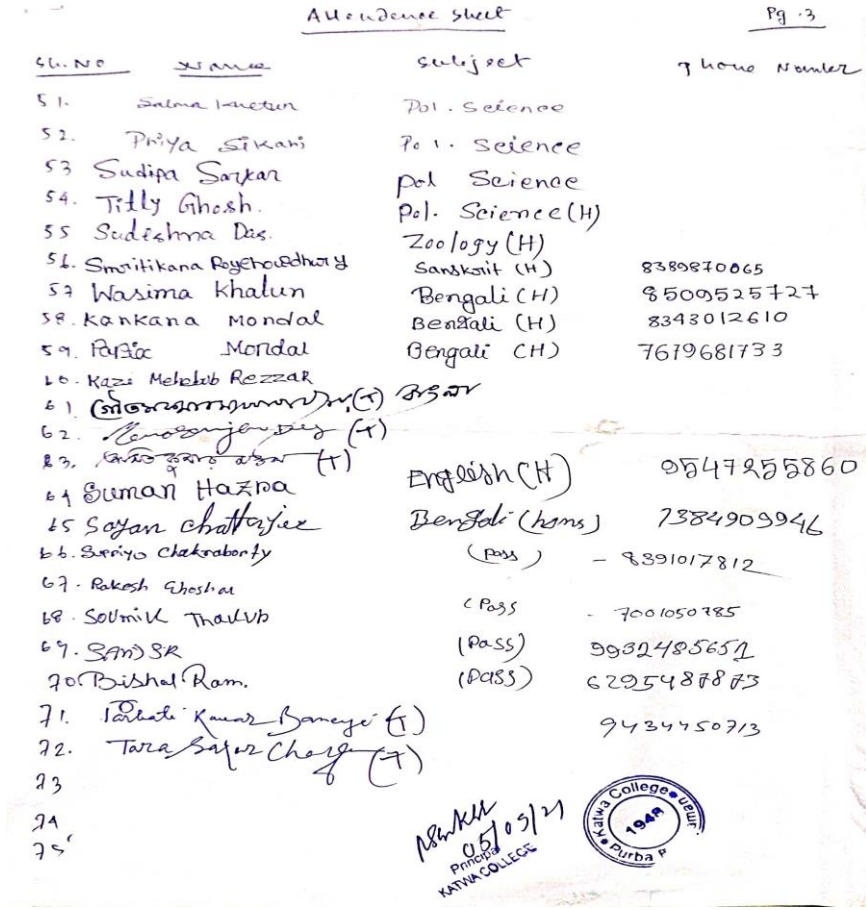 Attendence sheet Pg. 3
Sl. NO Name Subject Phone Number
51. Salma Khatun Pol. Science
52. Priya Sikari Pol. Science
53 Sudipa Sarkar Pol Science
54. Titly Ghosh. Pol. Science (H)
55 Sudeshna Das. Zoology (H)
56. Smritikana Roychowdhury Sanskrit (H) 8389870065
57 Wasima Khatun Bengali (H) 8509525727
58. Kankana Mondal Bengali (H) 8343012610
59. Mondal Bengali (H) 7679681733
60. Kazi Mehebub Rezzak
61 (T)
62. (T)
63. (T)
64 Suman Hazra English (H) 9547255860
65 Sayan Chatterjee Bengali (hons) 7384909946
66. Supriyo Chakraborty (pass) - 8391017812
67. Rakesh Ghoshal
68. Soumik (Pass - 7001050785
69. (Pass) 9932485651
70. Bishal Ram. (pass) 6295487873
71. Kumar Banerje (T) 9434450713
72. Tara (T)
73
74
75
05/09/21
Principal
KATWA COLLEGE
Katwa College
1948
Purba